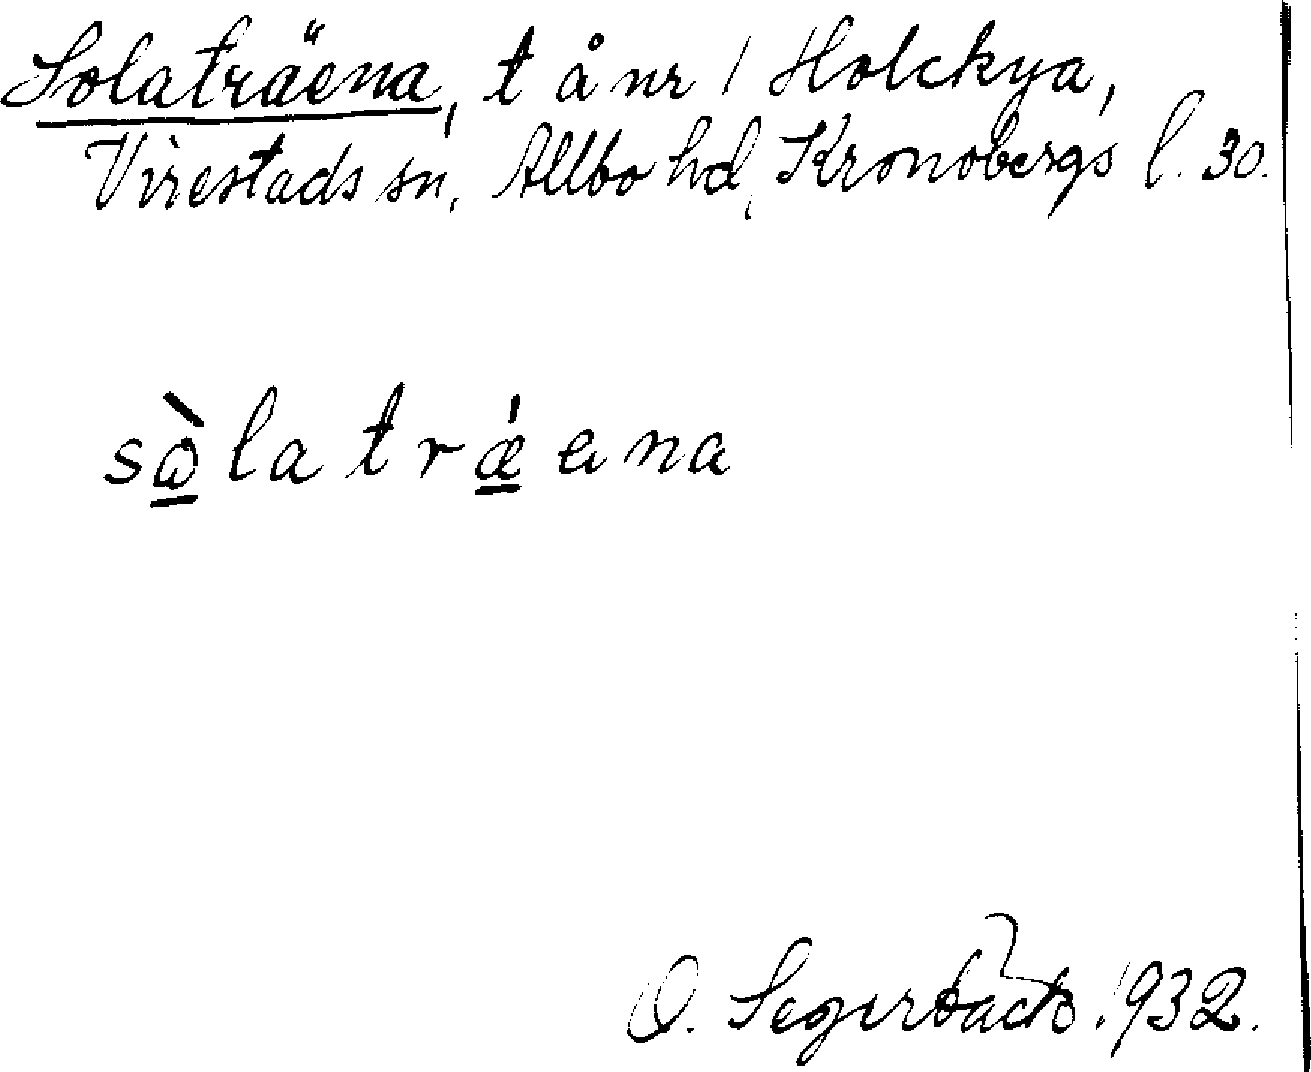 Solaträena, t å nr 1 Holckya,
Virestads sn, Allbo hd, Kronobergs l. 30.
sòlatrǽena
O. Segerbäck. 1932.